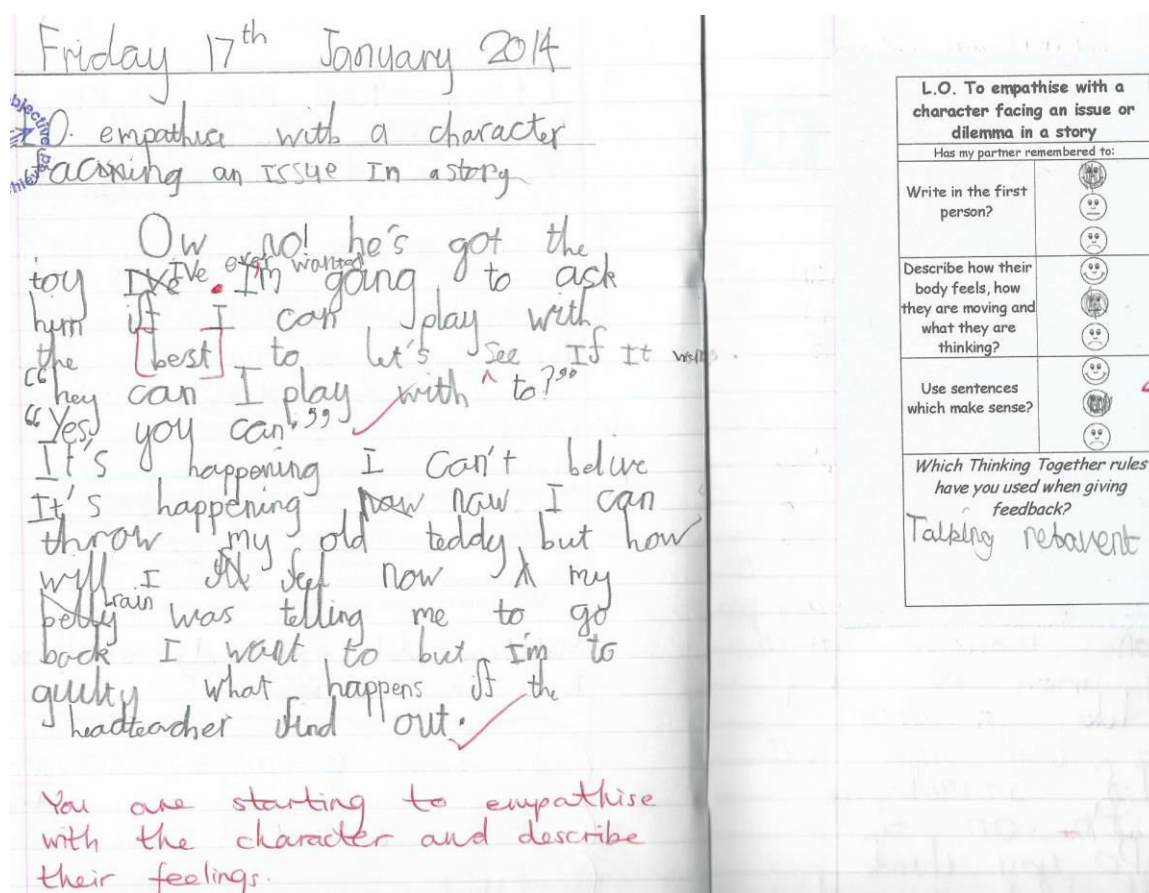 Friday 17th January 2014
L.O. empathise with a character
facing an issue in a story
Ow no! he's got the
toy I've ever wanted. I'm going to ask
him if I can play with
the best to let's see if it works.
"hey can I play with to?"
"Yes you can."
It's happening I can't belive
It's happening now now I can
throw my old teddy but how
will I feel now my
brain was telling me to go
back I want to but I'm to
guilty what happens if the
headteacher find out.
You are starting to empathise
with the character and describe
their feelings.
L.O. To empathise with a
character facing an issue or
dilemma in a story
Has my partner remembered to:
Write in the first
person?
Describe how their
body feels, how
they are moving and
what they are
thinking?
Use sentences
which make sense?
Which Thinking Together rules
have you used when giving
feedback?
Talking